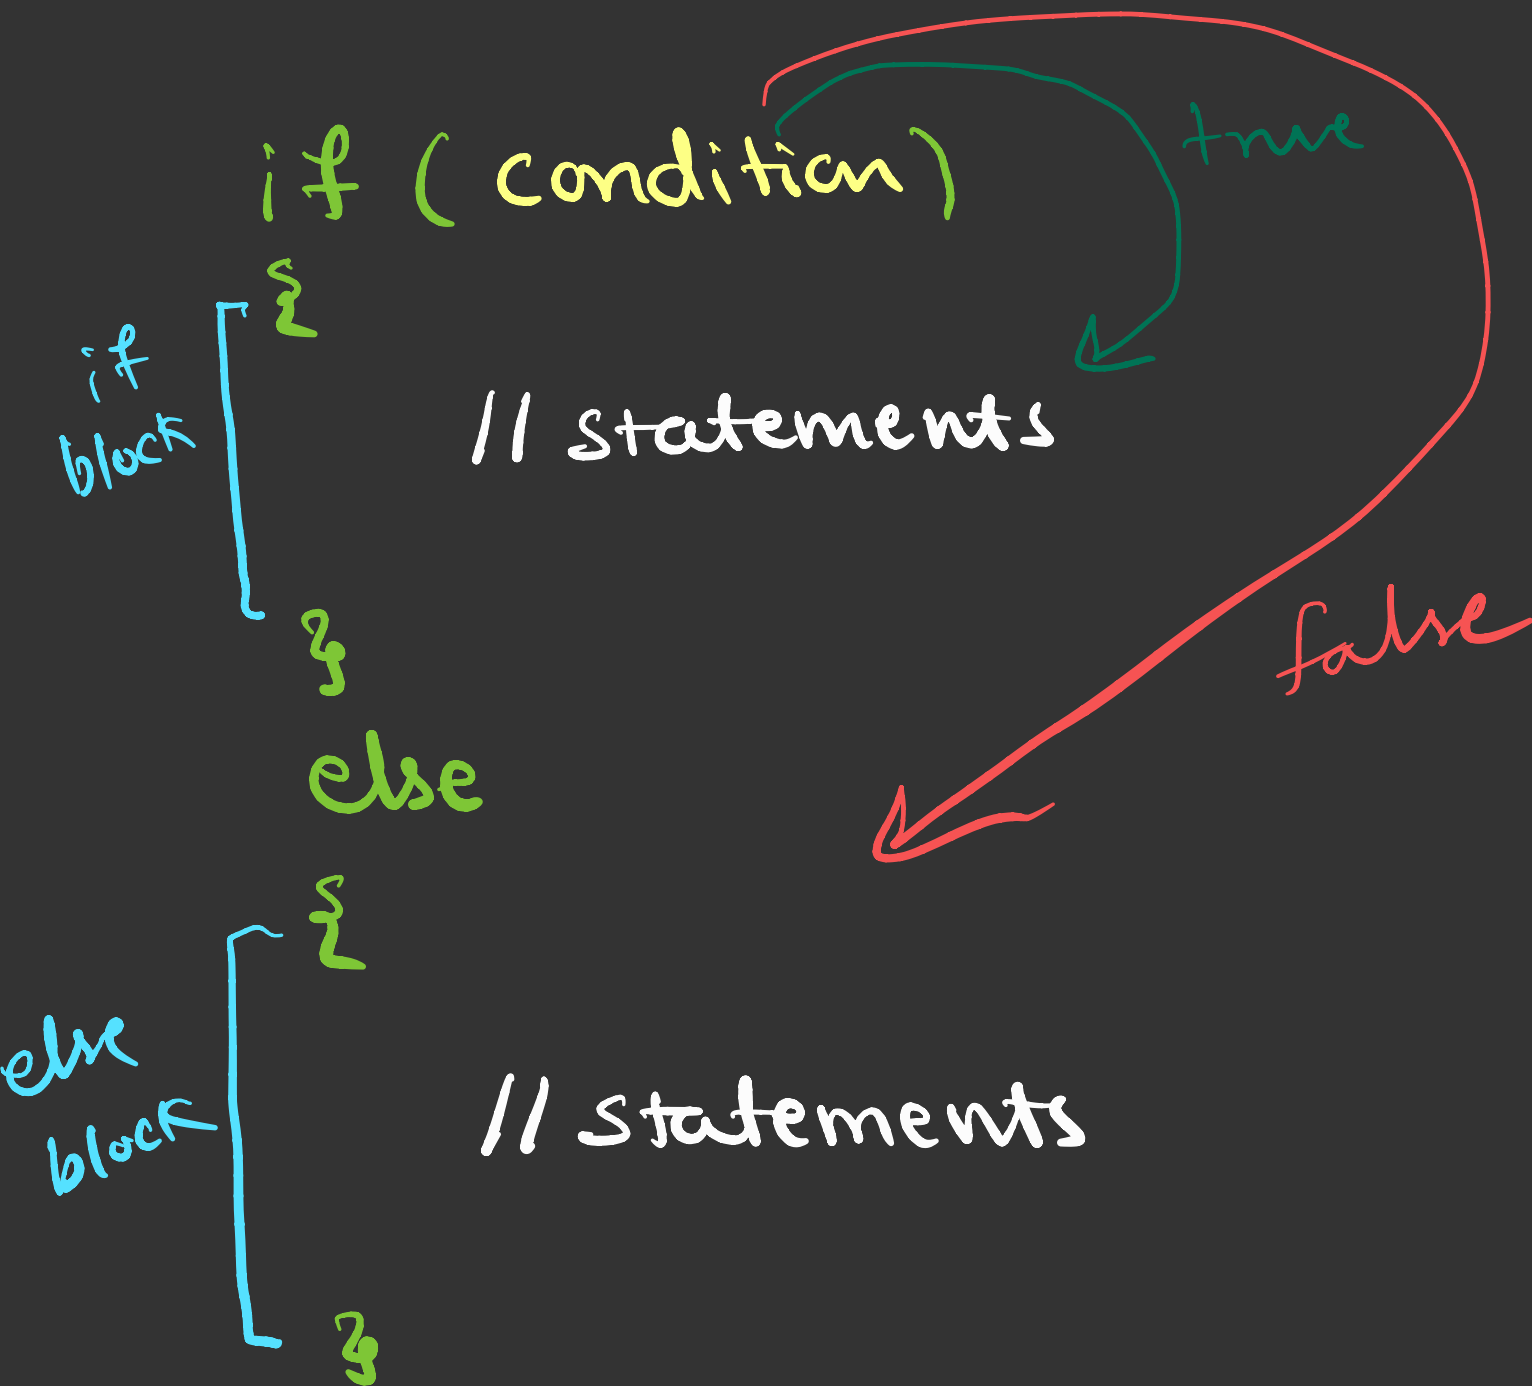 if ( condition )
true
{
if
block
// statements
}
false
else
{
else
block
// statements
}